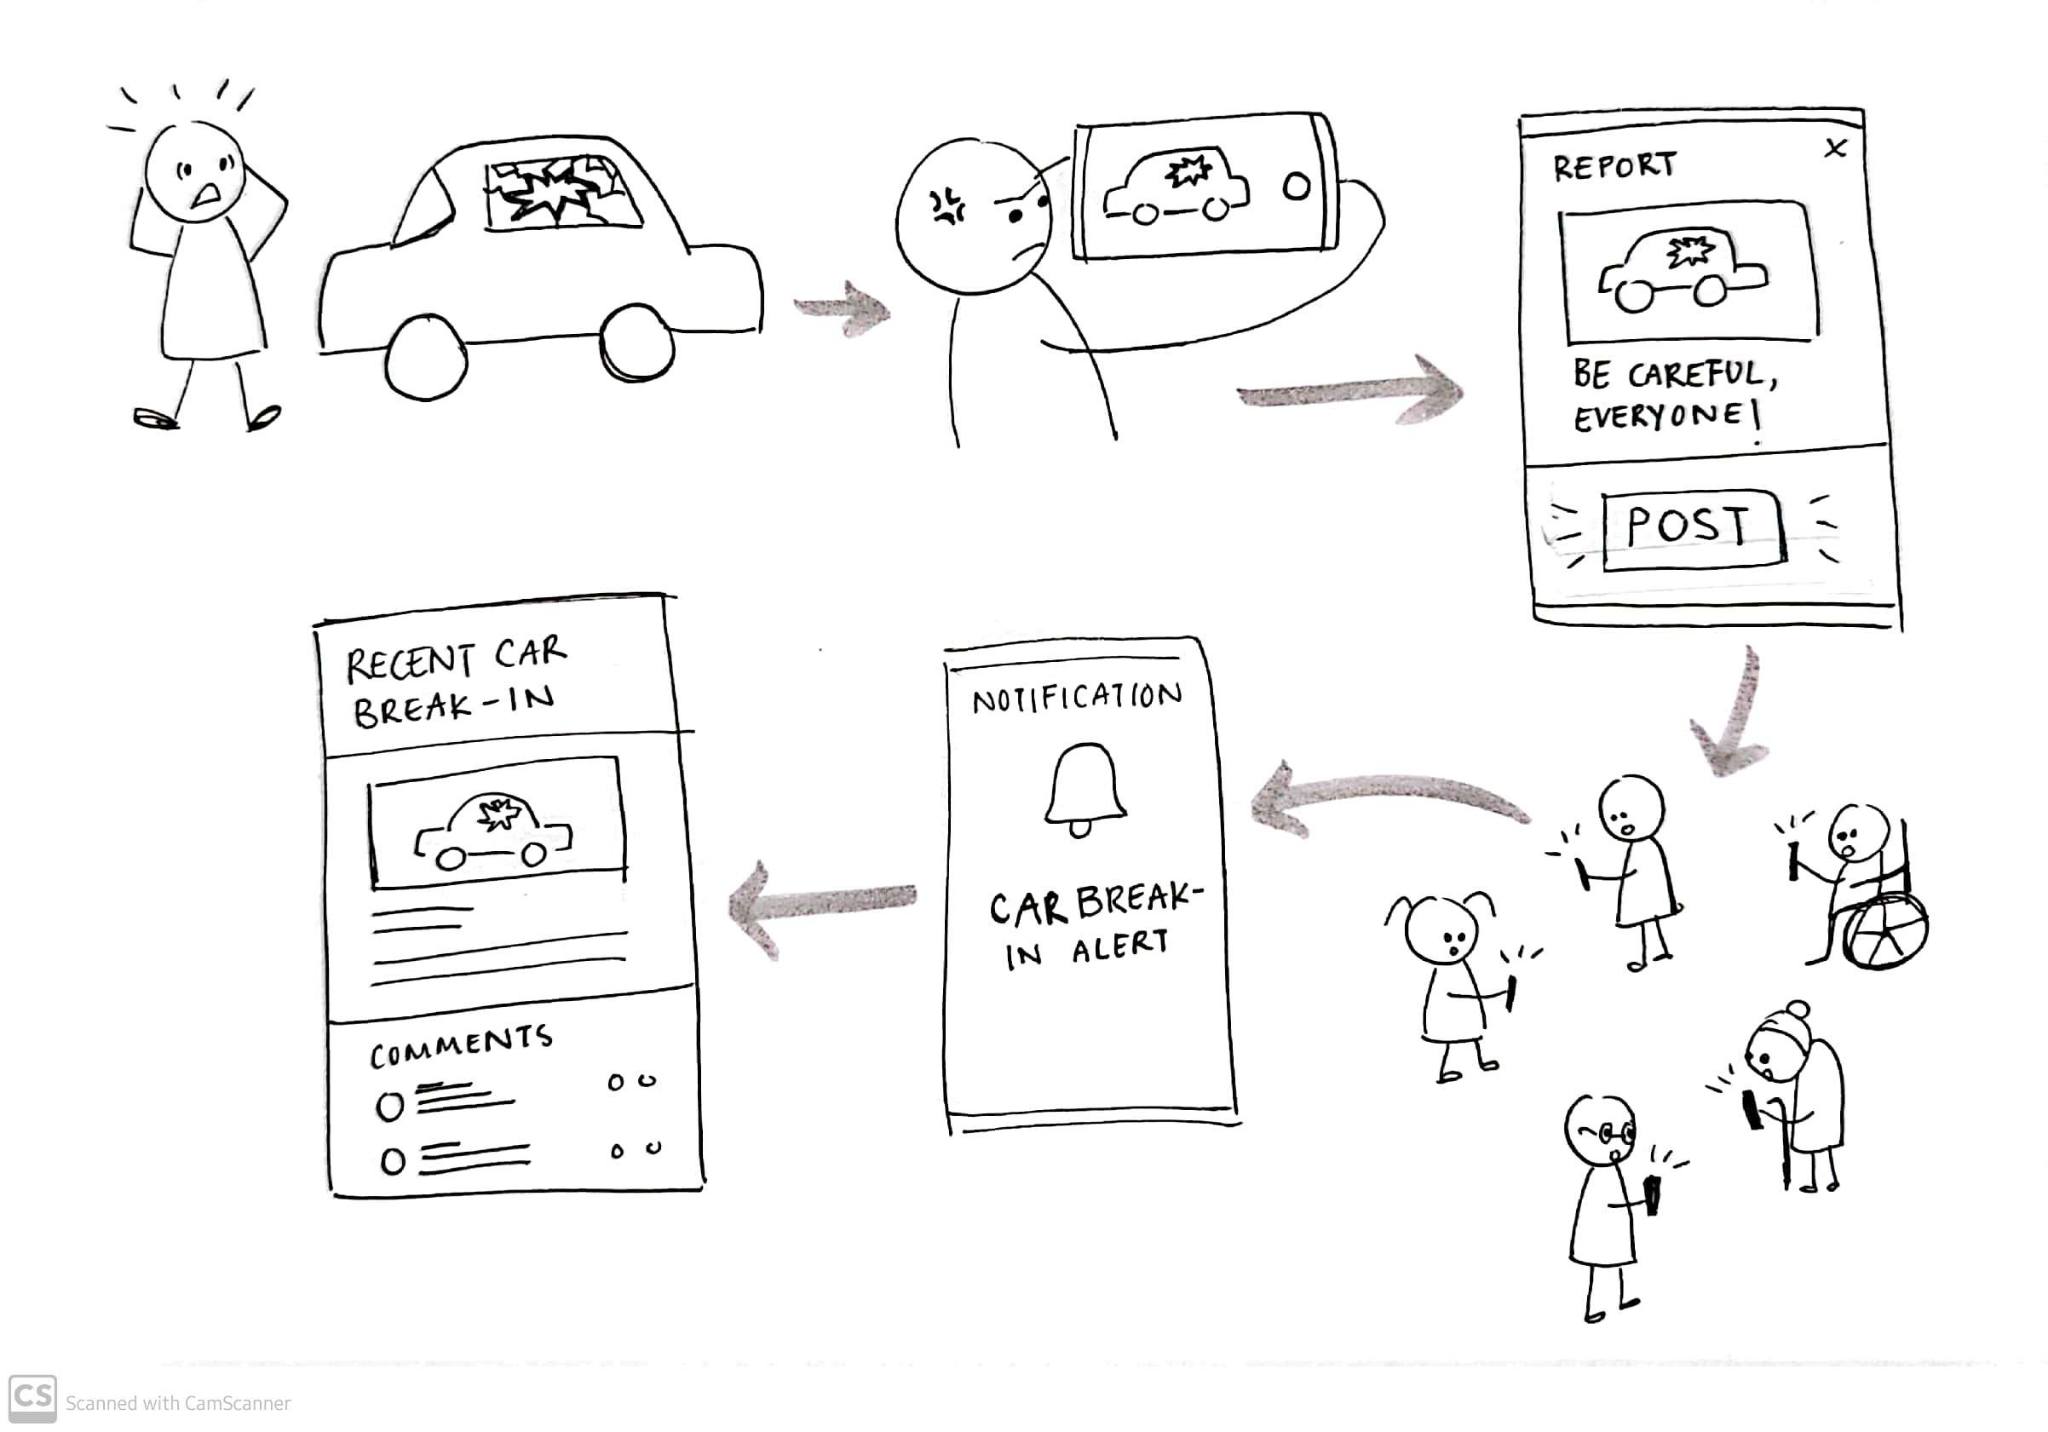 REPORT
X
BE CAREFUL,
EVERYONE!
POST
NOTIFICATION
CAR BREAK-
IN ALERT
RECENT CAR
BREAK-IN
COMMENTS
CS
Scanned with CamScanner